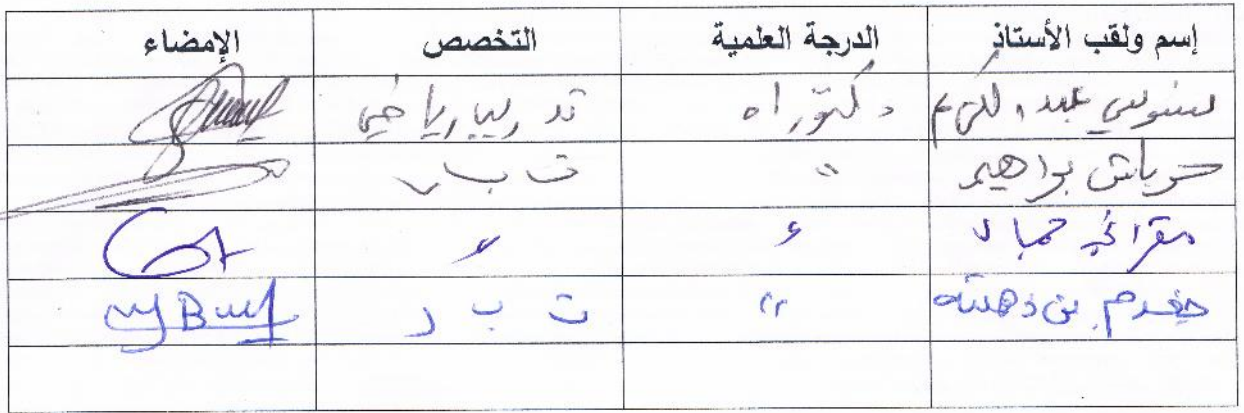 إسم ولقب الأستاذ الدرجة العلمية التخصص الإمضاء
سنوسي عبد الكريم دكتوراه تدريب رياضي
حرباش براهيم " ت ب ر
مقراني جمال " "
بن ذهيبة " ت ب ر